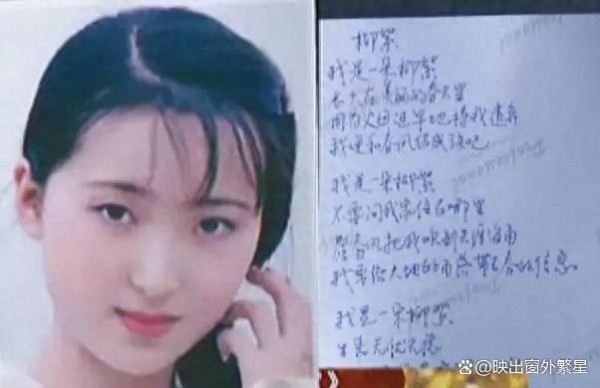 柳絮
我是一朵柳絮
长大在美丽的春天里
因为父母过早地将我遗弃
我便和春风结成了知己
我是一朵柳絮
不要问我家住在哪里
愿春风把我吹到天涯海角
我要给大地的角落带去春的信息
我是一朵柳絮
生来无忧无虑
@映出窗外繁星